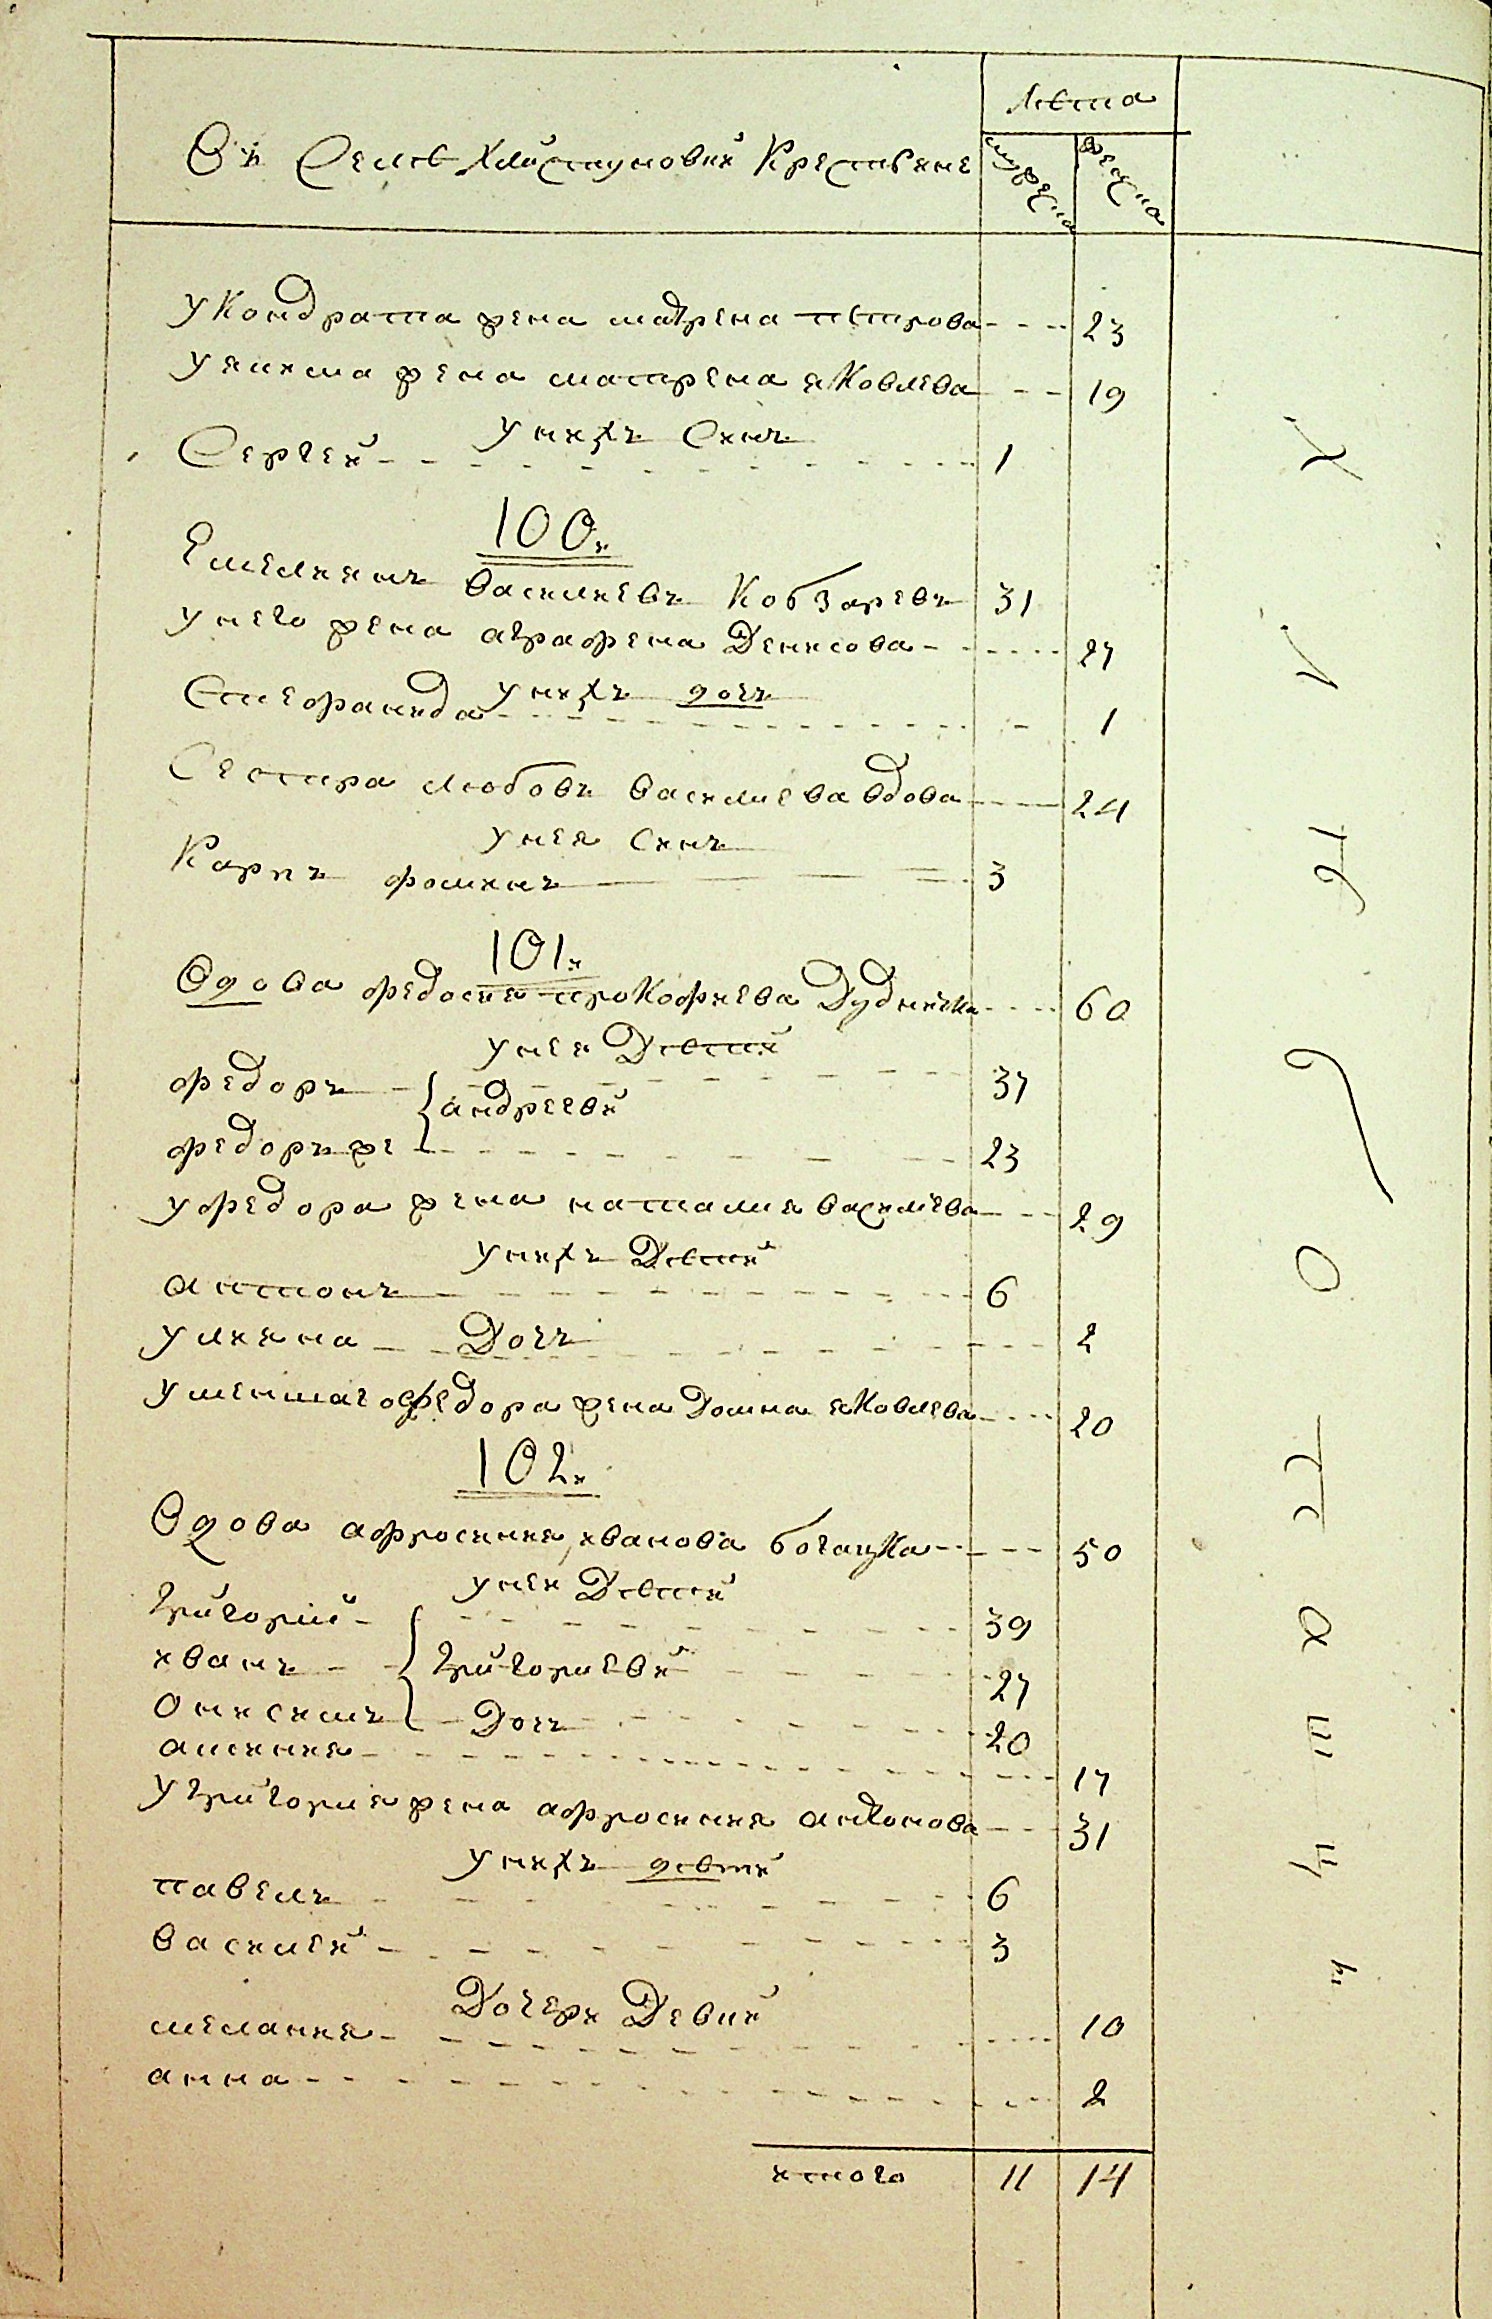 Въ Селѣ Хлистуновки Крестьяне
Лѣта
мужеска
женска
у Кондрата жена матрена петрова 23
у якима жена матрена яковлева 19
у нихъ Синъ
Сергей 1
100.
Емелиянъ василиевъ Кобзаревъ 31
у него жена аграфена Денисова 27
у нихъ дочь
1
Сестра Любовь василиева вдова 24
у нея Синъ
Карпъ фоминъ 3
101.
Вдова федосия прокофиева Дудничка 60
у нея Дѣти
федоръ 37
андрееви
федоръ же 23
у федора жена наталия василиева 29
у нихъ Дѣти
антонъ 6
улияна Дочь 2
у меншаго федора жена Домна яковлева 20
102.
Вдова афросиния иванова 50
у нея Дѣти
григорий 39
иванъ григориеви 27
онисимъ 20
Дочь
17
у григория жена афросиния антонова 31
у нихъ дѣти
павелъ 6
василей 3
Дочери Девки
мелания 10
анна 2
итого 11 14